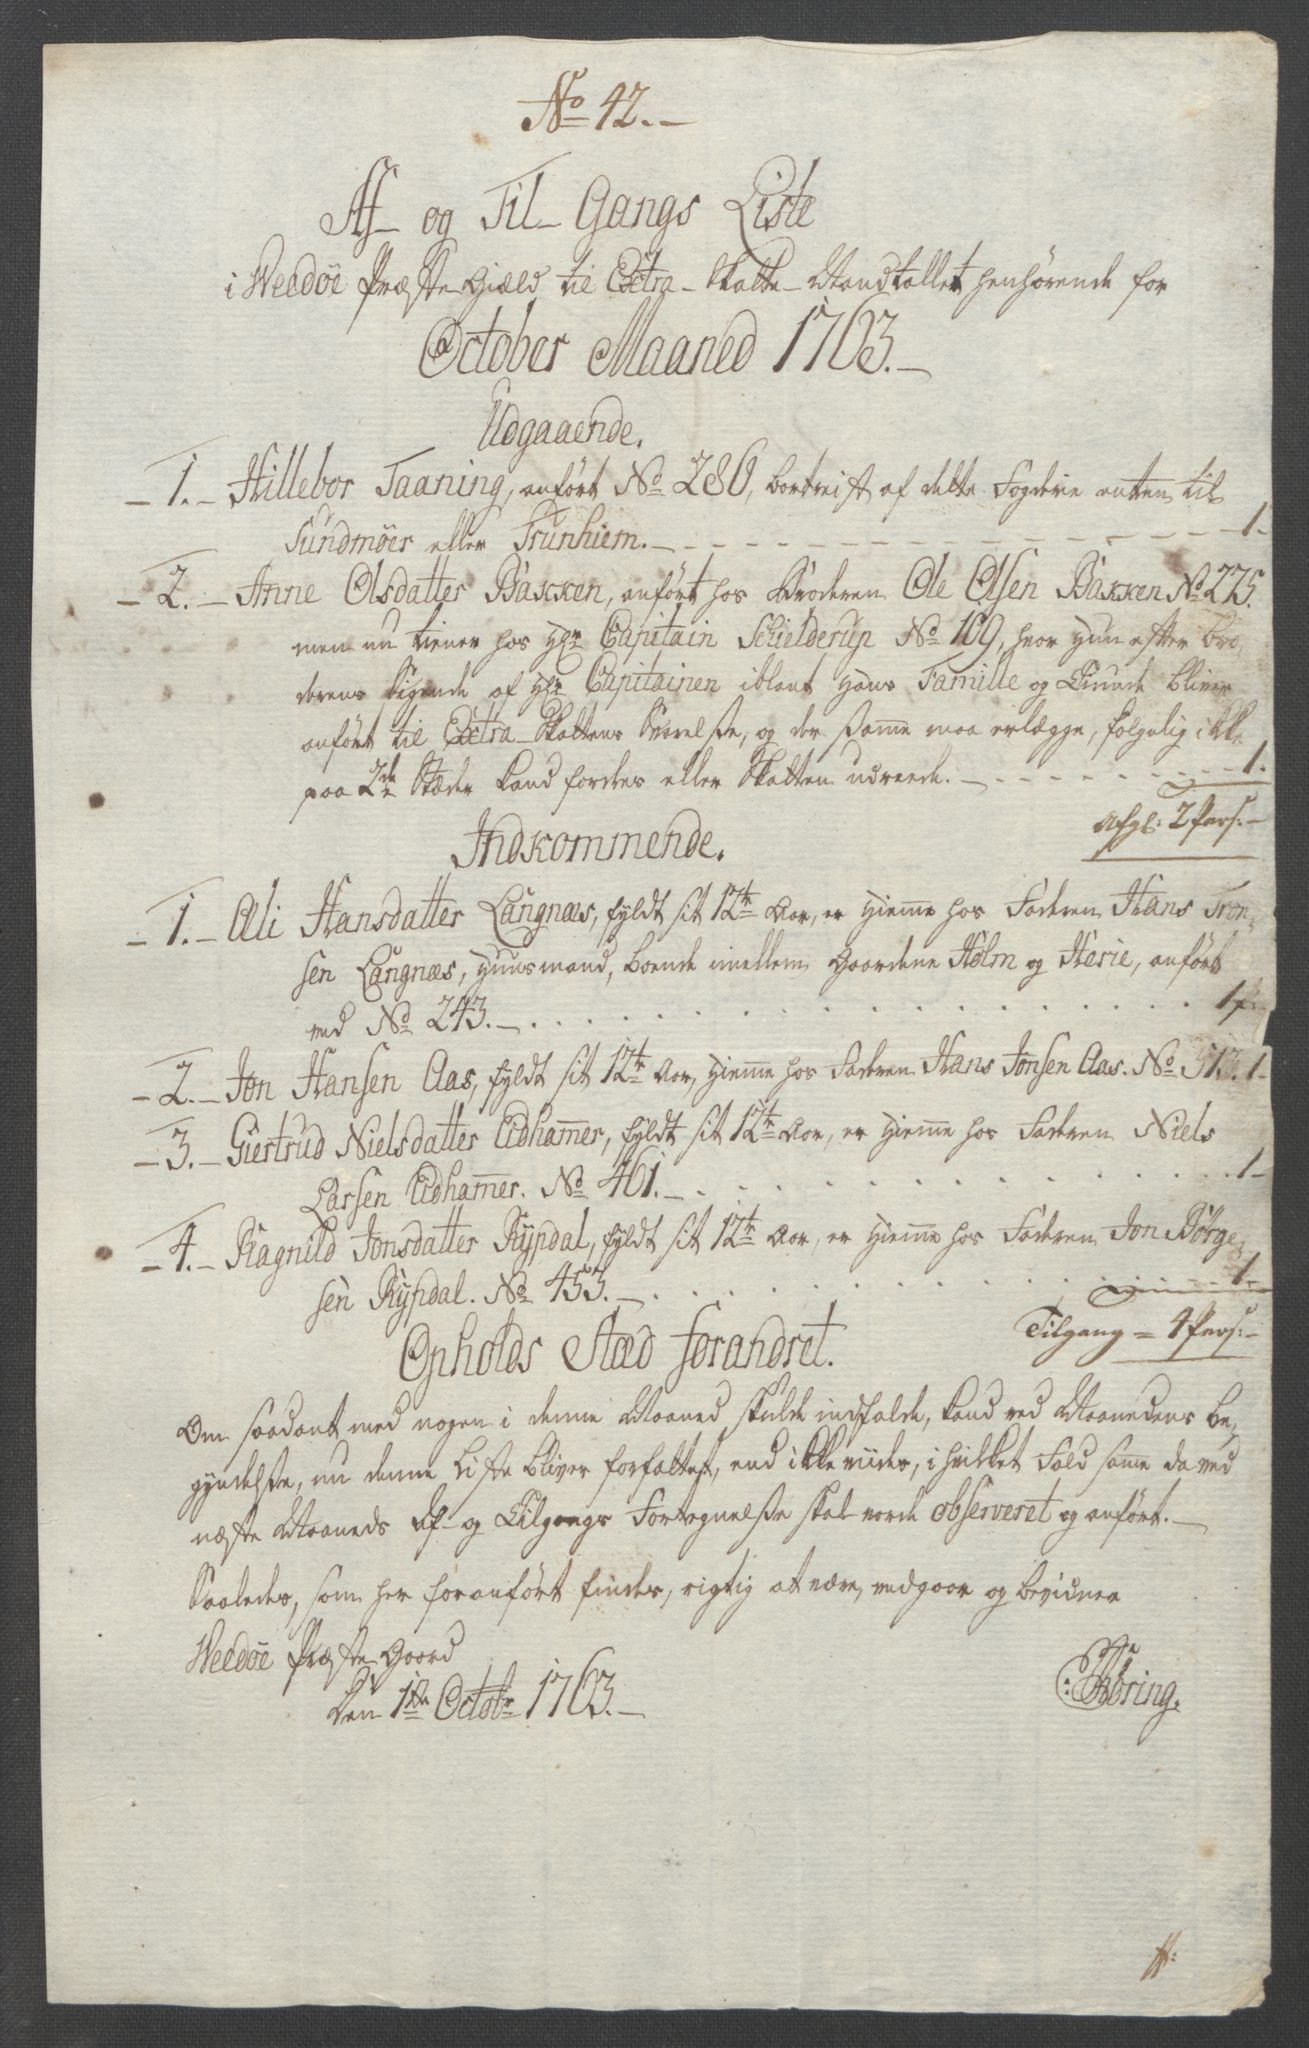 No 42.-
Af- og Til- Gangs Liste
i Weedöe Præste Gield til Extra- Skatte- Mandtallet henhörende for
October Maaned 1763.-
Udgaaende.
- 1. - Hillebor Taaning, anfört No 280, bortreist af dette Fogderie enten til
Sundmöer eller Trunhiem. - - - 1-
- 2. - Anne Olsdatter Bakken, anfört hos Broderen Ole Olsen Bakken No 225.
men nu tiener hos Hr Capitain Schielderup No 169, hvor hun efter Bro,
derens Sigende af Hr Capitainen iblant hans Famille og Siunde bliver
anfört til Extra- Skattens Svarelse, og der samme maa erlægge, fölgelig ikke
paa 2de Stæder kand fordres eller Skatten udreede. - - - 1.
Afgl: 2 Pers:-
Indkommende.
- 1. - Eli Hansdatter Langnæs, fyldt sit 12te Aar, er hieme hos Faderen Hans Tron,
sen Langnæs, Huusmand, boende imellem Gaardene Holm og Herie, anfört
ved No 243. - . . . 1 p.
- 2. - Jon Hansen Aas, fyldt sit 12te Aar, hieme hos Faderen Hans Jonsen Aas. No 513. 1-
- 3. - Giertrud Nielsdatter Eidhamer, fyldt sit 12te Aar, er hieme hos Faderen Niels
Larsen Eidhamer. No 461. - . . . 1-
- 4. - Ragnild Jonsdatter Rypdal, fyldt sit 12te Aar, er hieme hos Faderen Jon Börge,
sen Rypdal. No 453. - . . . 1.-
Tilgang = 4 Pers:-
Opholds Stæd forandret.
Om saadant med nogen i denne Maaned skulde indfalde, kand ved Maanedens be,
gyndelse, nu denne Liste bliver forfattet, end ikke viides, i hvilket Fald same da ved
næste Maaneds Af- og Tilgangs Fortegnelse skal vorde observeret og anfört.-
Saaledes, som her foranfört findes, rigtig at være, vedgaar og bevidner
Weedöe Præste Gaard
Den 1ste Octobr 1763.-
Röring.